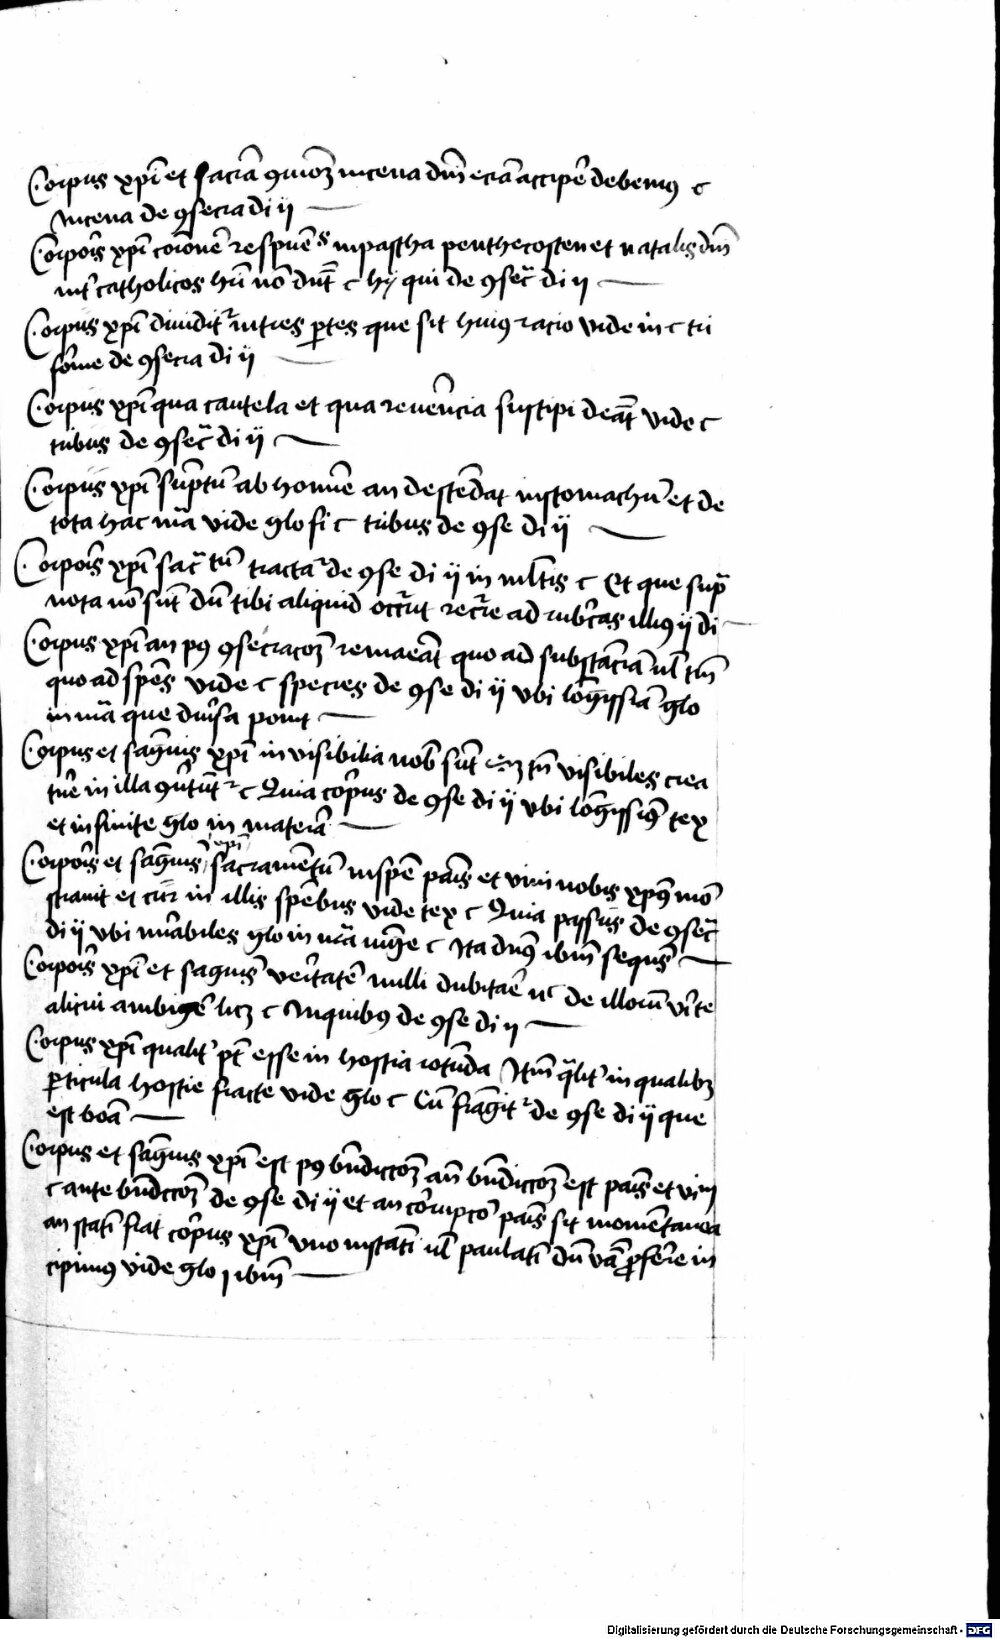 Corpus xpī et sacrā ꝯmōꝫ in cena dn̄i eciā accipe᷑ debemꝰ c
In cena de ꝯsecra di ij
Corpoꝭ xpī coīonē respuēs in pascha penthecosten et natalis dn̄i
int᷑ catholicos hr̄i nō dn̄t c hij qui de ꝯsec̄ di ij
Corpus xpī diuidit᷑ in tres ꝑtes que sit huiꝰ racio vide in c tri
forme de ꝯsecra di ij
Corpus xpī qua cautela et qua reuerēcia suscipi deāt vide c
tribus de ꝯsec̄ di ij
Corpus xpī sūptū ab homīe an descēdat in stomachū et de
tota hac mā vide glo fi c tribus de ꝯse di ij
Corporis xpī sac̄tū tracta᷑ de ꝯse di ij in ml̄tis c Et que sup̄
nota nō sūt dū tibi aliquid occ̄rit recr̄re ad rubᷓcas illiꝰ ij di
Corpus xpī an pꝰ ꝯsecracōꝫ remaeāt quo ad substāciā ul̄ tm̄
quo ad spēs vide c species de ꝯse di ij vbi lōgissīā glo
in mā que diu᷑sa ponit
Corpus et sāguis xpī in visibilia nob̄ sūt tn̄ visibiles crea
ture in illa ꝯu᷑tūt᷑ c Quia corpus de ꝯse di ij vbi lōgissimꝰ tex
et infinite glo in materia
Corporis et sāguīs xpī sacramētū in spē pāis et vini nobis xpꝰ mō
strauit et cur in illis spēbus vide tex c Quia passus de ꝯsec̄
di ij vbi mirabiles glo in mā iūge c Ita dn̄s ibm̄ sequēs
Corporis xpī et saguīs veritatē nulli dubitāe᷑ nc̄ de illorum v᷑i te
alicui ambige᷑ licꝫ c In quibꝰ de ꝯse di ij
Corpus xpī qualit᷑ pt̄ esse in hostia rotūda Itm̄ qᷓlit᷑ in qualibꝫ
ꝑticula hostie fracte vide glo c Cū frāgit᷑ de ꝯse di ij que
est bōa
Corpus et sāguis xpī est pꝰ bn̄dictōꝫ añ bn̄dictōꝫ est pāis et vini
c ante bn̄dctōꝫ de ꝯse di ij et an corrupcō pāis sit momētanea
an statī fiat corpus xpī vno instāti ul̄ paulatī dū v̄ba ꝓfere in
cipimꝰ vide glo j ibm̄
Digitalisierung gefördert durch die Deutsche Forschungsgemeinschaft - DFG